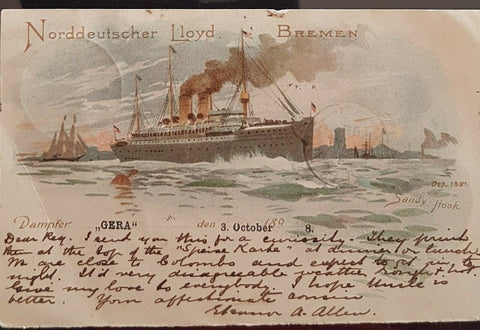 Norddeutscher Lloyd, Bremen.
Dep. 1891.
Sandy Hook.
Dampfer „GERA“ den 3. October 1898.
Dear Reg. I send you this for a curiosity. They print
them at the top of the Speise Karte at dinner & lunch
We are close to Colombo and expect to get in to
night. It'd very disagreeable weather rough & hot.
Give my love to everybody. I hope Uncle is
better. Your affectionate cousin
Eleanor A. Allen.